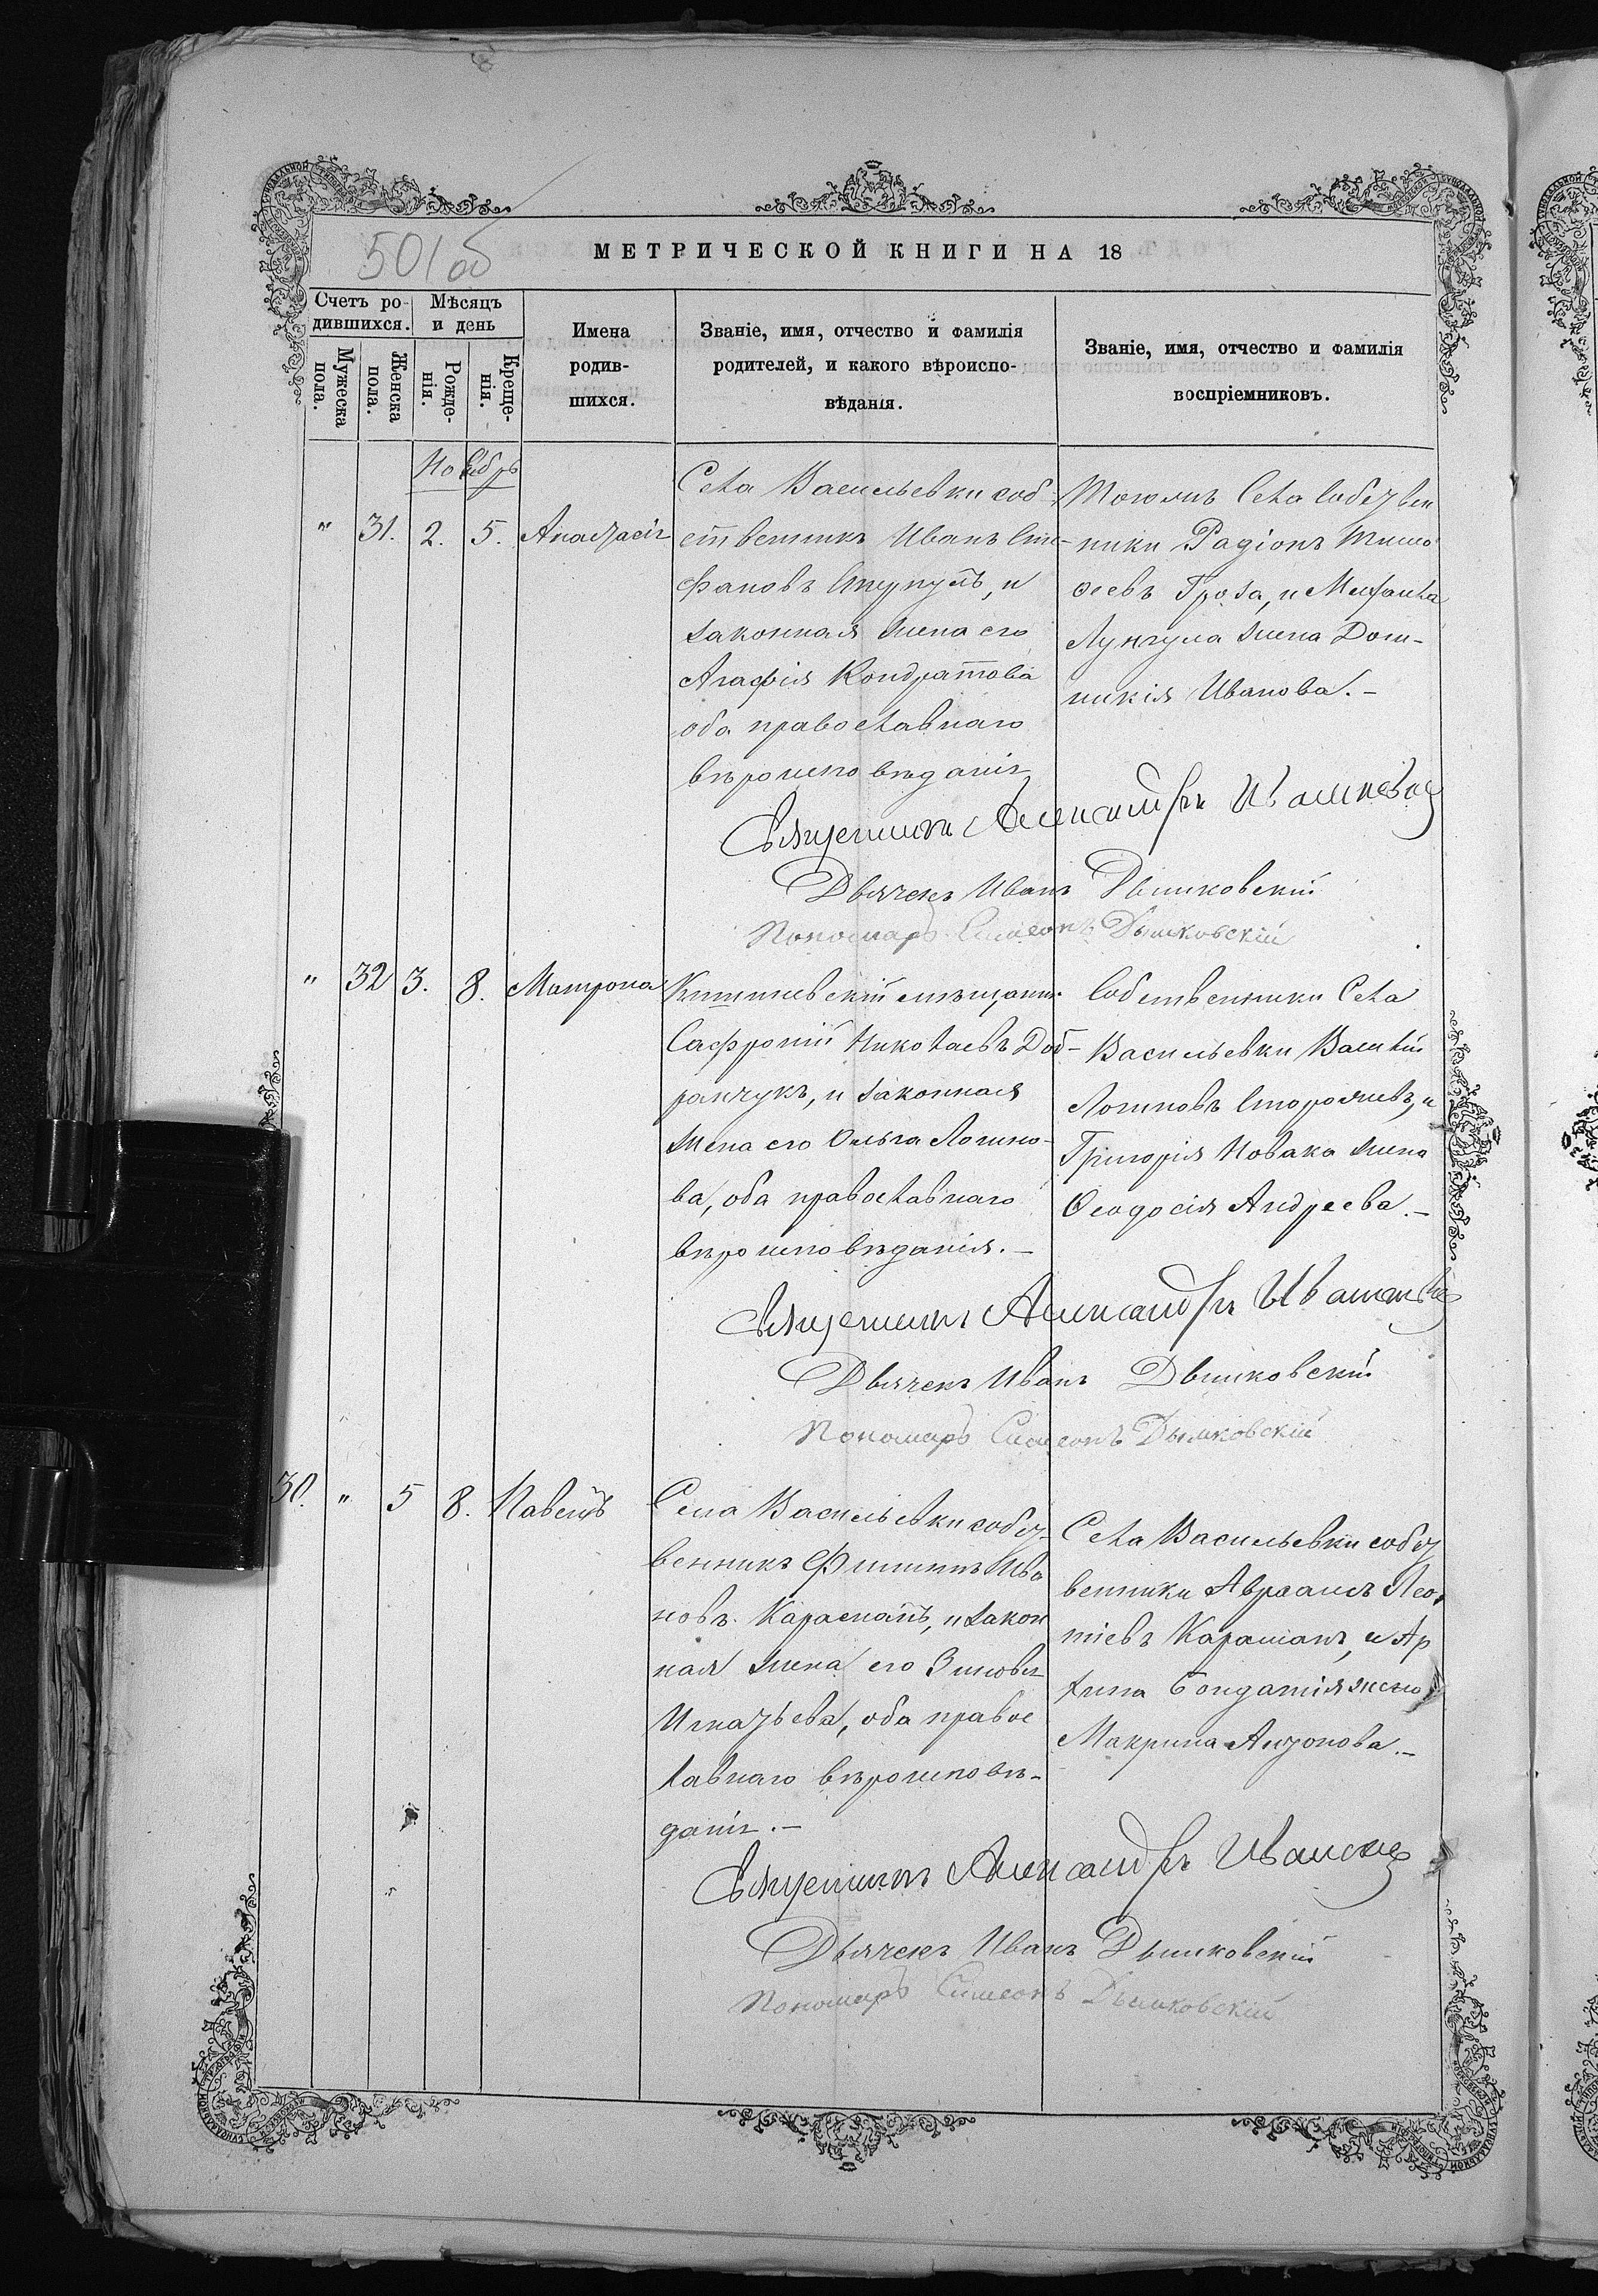 501 об
МЕТРИЧЕСКОЙ КНИГИ НА 18
Счетъ ро-
дившихся.
Мужеска
пола.
Женска
пола.
Мѣсяцъ
и день
Рожде-
нія.
Креще-
нія.
Имена
родив-
шихся.
Званіе, имя, отчество и фамилія
родителей, и какого вѣроиспо-
вѣданія.
Званіе, имя, отчество и фамилія
воспріемниковъ.
Ноябрь
" 31. 2. 5. Анастасія
Села Васильевки соб-
ственникъ Иванъ Сте-
фановъ и
законная жена его
Агафія Кондратова
оба православнаго
вѣроисповѣданія
Тогожъ Села Собствен
ники Радіонъ Тимо
феевъ Гроза, и
жена Дом-
никія Иванова.-
Священникъ Александръ
Дьячекъ Иванъ Дымковскій
Пономарь Симеонъ Дымковскій
" 32 3. 8. Матрона
Кишиневскій мѣщанинъ
Сафроній Николаевъ Доб-
ранчукъ, и законная
жена его Ольга Логино-
ва, оба православнаго
вѣроисповѣданія.-
Собственники Села
Васильевки Василій
Логиновъ и
Григорія Новака жена
Ѳеодосія Андреева.-
Священникъ Александръ
Дьячекъ Иванъ Дымковскій
Пономарь Симеонъ Дымковскій
30. " 5 8. Павелъ
Села Васильевки собст-
венникъ Филиппъ Ива
новъ Караманъ, и закон
ная жена его Зиновія
Игнатьева, оба правос
лавнаго вѣроисповѣ-
данія.-
Села Васильевки собст
венники Авраамъ Леон
тіевъ Караманъ, и
жена
Макрина Антонова.-
Священникъ Александръ
Дьячекъ Иванъ Дымковскій
Пономарь Симеонъ Дымковскій